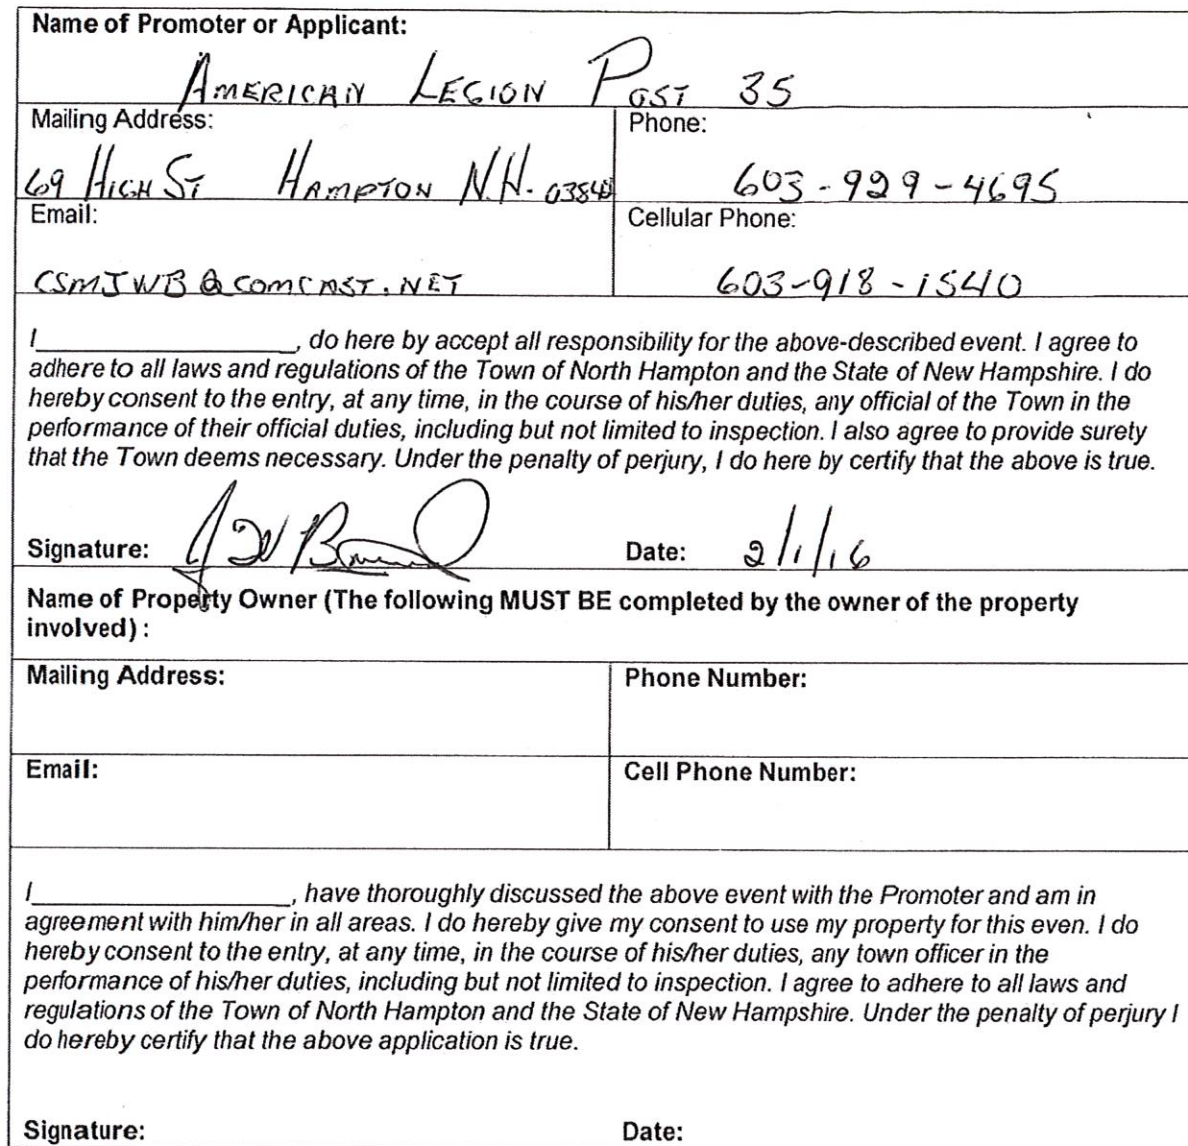 Name of Promoter or Applicant:
AMERICAN LEGION POST 35
Mailing Address:
Phone:
69 HIGH ST HAMPTON N.H. 03842
603-929-4695
Email:
Cellular Phone:
CSMJWB@COMCAST.NET
603-918-1540
I____________________, do here by accept all responsibility for the above-described event. I agree to
adhere to all laws and regulations of the Town of North Hampton and the State of New Hampshire. I do
hereby consent to the entry, at any time, in the course of his/her duties, any official of the Town in the
performance of their official duties, including but not limited to inspection. I also agree to provide surety
that the Town deems necessary. Under the penalty of perjury, I do here by certify that the above is true.
Signature: Date: 2/1/16
Name of Property Owner (The following MUST BE completed by the owner of the property
involved) :
Mailing Address:
Phone Number:
Email:
Cell Phone Number:
I____________________, have thoroughly discussed the above event with the Promoter and am in
agreement with him/her in all areas. I do hereby give my consent to use my property for this even. I do
hereby consent to the entry, at any time, in the course of his/her duties, any town officer in the
performance of his/her duties, including but not limited to inspection. I agree to adhere to all laws and
regulations of the Town of North Hampton and the State of New Hampshire. Under the penalty of perjury I
do hereby certify that the above application is true.
Signature: Date: